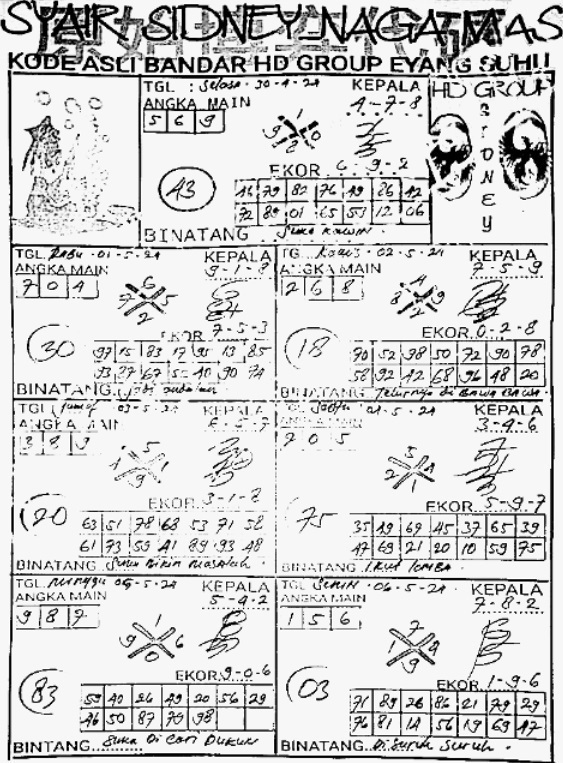 SYAIR SIDNEY NAGA MAS
KODE ASLI BANDAR HD GROUP EYANG SUHU
TGL : Selasa · 30-4-24 KEPALA
ANGKA MAIN 4-7-8
5 6 9
EKOR 6-9-2
43
46 79 82 76 49 26 42
72 89 01 65 51 12 06
BINATANG Suka Kawin
HD GROUP
SIDNEY
TGL Rabu · 01-5-24 KEPALA
ANGKA MAIN 9-1-8
7 0 4
6
7 5
2
EKOR 7-5-3
30
97 15 83 17 95 13 85
93 27 67 57 40 90 74
BINATANG
TG. Kamis · 02-5-24 KEPALA
ANGKA MAIN 7-5-9
2 6 8
4
8 9
2
EKOR 0-2-8
18
70 52 98 50 72 90 78
58 92 42 68 96 48 20
BINATANG Telurnya di BAWA BAWA
TGL Jumat 03-5-24 KEPALA
ANGKA MAIN 6-5-7
3 8 9
5
1 9
EKOR 3-1-8
20
63 51 78 68 53 71 58
61 73 59 41 89 93 48
BINATANG Suka Bikin Masalah
TGL Sabtu 04-5-24 KEPALA
ANGKA MAIN 3-4-6
7 0 5
5
2 4
1
EKOR 5-9-7
75
35 49 69 45 37 65 39
47 69 21 20 10 59 75
BINATANG IKUT LOMBA
TGL Minggu 05-5-24 KEPALA
ANGKA MAIN 5-4-2
9 8 7
1
9 6
0
EKOR 9-0-6
83
59 40 26 49 20 56 29
46 50 87 79 98
BINTANG Suka Di Cari Dukun
TGL Senin · 06-5-24 KEPALA
ANGKA MAIN 7-8-2
1 5 6
7
1 4
9
EKOR 1-9-6
03
71 89 26 86 21 79 29
76 81 14 56 19 69 47
BINATANG Di Suruh Suruh